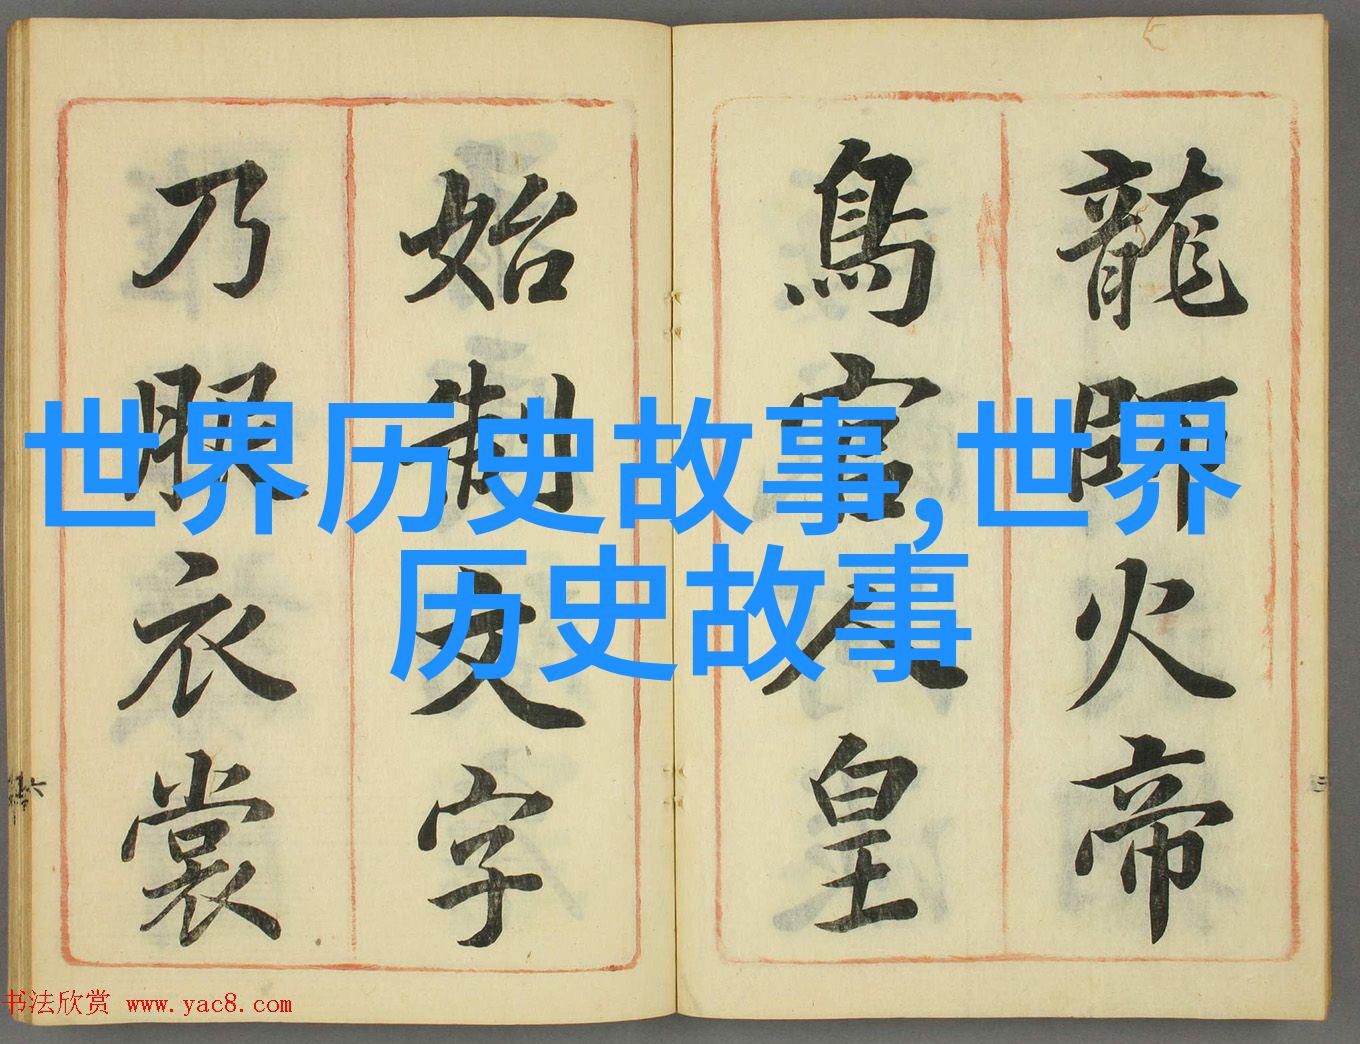 龍師火帝
鳥官人皇
始制文字
乃服衣裳
世界历史故事,世界
历史故事
书法欣赏 www.yac8.com